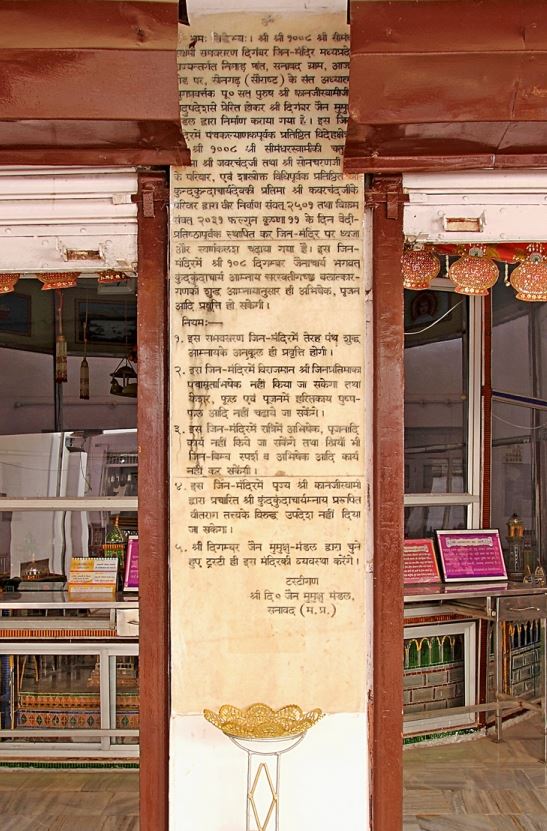 श्री श्री १००८ श्री
समवसरण दिगंबर जिन-मंदिर मध्यप्रदे
निमाड़ प्रांत, सनावद ग्राम,
पर, सोनगढ़ (सौराष्ट्र) के संत अध्यात्म
पू० सत् पुरुष श्री कानजीस्वामीजी
प्रेरित होकर श्री दिगंबर जैन मुमु
द्वारा निर्माण कराया गया है।। इस जि
पंचकल्याणकपूर्वक प्रतिष्ठित विदेहक्षे
श्री १००८ श्री सीमंधरस्वामीकी
श्री जवरचंदजी तथा श्री सोनचरणजी
के परिवार, एवं शास्त्रोक्त विधिपूर्वक प्रतिष्ठित
कुन्दकुन्दाचार्यदेवकी प्रतिमा श्री कवरचंदजीके
परिवार द्वारा वीर निर्वाण संवत् २५०१ तथा विक्रम
संवत् २०३१ फाल्गुन कृष्णा ११ के दिन वेदी-
प्रतिष्ठापूर्वक स्थापित कर जिन-मंदिर पर ध्वजा
और स्वर्णकलश चढ़ाया गया है। इस जिन-
मंदिरमें श्री १०८ दिगम्बर जैनाचार्य भगवत्
कुन्दकुन्दाचार्य आम्नाय सरस्वतीगच्छ बलात्कार-
गणकी शुद्ध आम्नायानुसार ही अभिषेक, पूजन
आदि प्रवृत्ति हो सकेगी।
नियम:—
१. इस समवसरण जिन-मंदिरमें तेरह पंथ शुद्ध
आम्नायके अनुकूल ही प्रवृत्ति होगी।
२. इस जिन-मंदिरमें विराजमान श्री जिनप्रतिमाका
पंचामृताभिषेक नहीं किया जा सकेगा तथा
केशर, फूल एवं पूजनमें हरितकाय पुष्प-
फल आदि नहीं चढ़ाये जा सकेंगे।
३. इस जिन-मंदिरमें रात्रिमें अभिषेक, पूजनादि
कार्य नहीं किये जा सकेंगे तथा स्त्रियाँ भी
जिन-बिम्ब स्पर्श व अभिषेक आदि कार्य
नहीं कर सकेंगी।
४. इस जिन-मंदिरमें पूज्य श्री कानजीस्वामी
द्वारा प्रचारित श्री कुंदकुंदाचार्याम्नाय प्ररूपित
वीतराग तत्त्वके विरुद्ध उपदेश नहीं दिया
जा सकेगा।
५. श्री दिगम्बर जैन मुमुक्षु-मंडल द्वारा चुने
हुए ट्रस्टी ही इस मंदिरकी व्यवस्था करेंगे।
ट्रस्टीगण
श्री दि० जैन मुमुक्षु मंडल,
सनावद (म.प्र.)